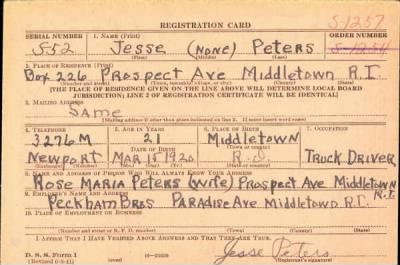 REGISTRATION CARD
S-1257
SERIAL NUMBER 1. NAME (Print) ORDER NUMBER
S52 Jesse (NONE) Peters S-1256
(First) (Middle) (Last)
2. PLACE OF RESIDENCE (Print)
Box 226 Prospect Ave Middletown R.I.
(Number and street) (Town, township, village, or city) (County) (State)
[THE PLACE OF RESIDENCE GIVEN ON THE LINE ABOVE WILL DETERMINE LOCAL BOARD
JURISDICTION; LINE 2 OF REGISTRATION CERTIFICATE WILL BE IDENTICAL]
3. MAILING ADDRESS
Same
[Mailing address if other than place indicated on line 2. If same insert word same]
4. TELEPHONE 5. AGE IN YEARS 6. PLACE OF BIRTH 7. OCCUPATION
3276M 21 Middletown
DATE OF BIRTH (Town or county)
Newport Mar 15 1920 R.I. Truck Driver
(Mo.) (Day) (Yr.) (State or country)
8. NAME AND ADDRESS OF PERSON WHO WILL ALWAYS KNOW YOUR ADDRESS
Rose Maria Peters (wife) Prospect Ave Middletown R.I.
9. EMPLOYER'S NAME AND ADDRESS
Peckham Bros Paradise Ave Middletown R.I.
10. PLACE OF EMPLOYMENT OR BUSINESS
(Number and street or R. F. D. number) (Town) (County) (State)
I AFFIRM THAT I HAVE VERIFIED ABOVE ANSWERS AND THAT THEY ARE TRUE.
D. S. S. Form 1 Jesse Peters
(Revised 6-9-41) (Registrant's signature)